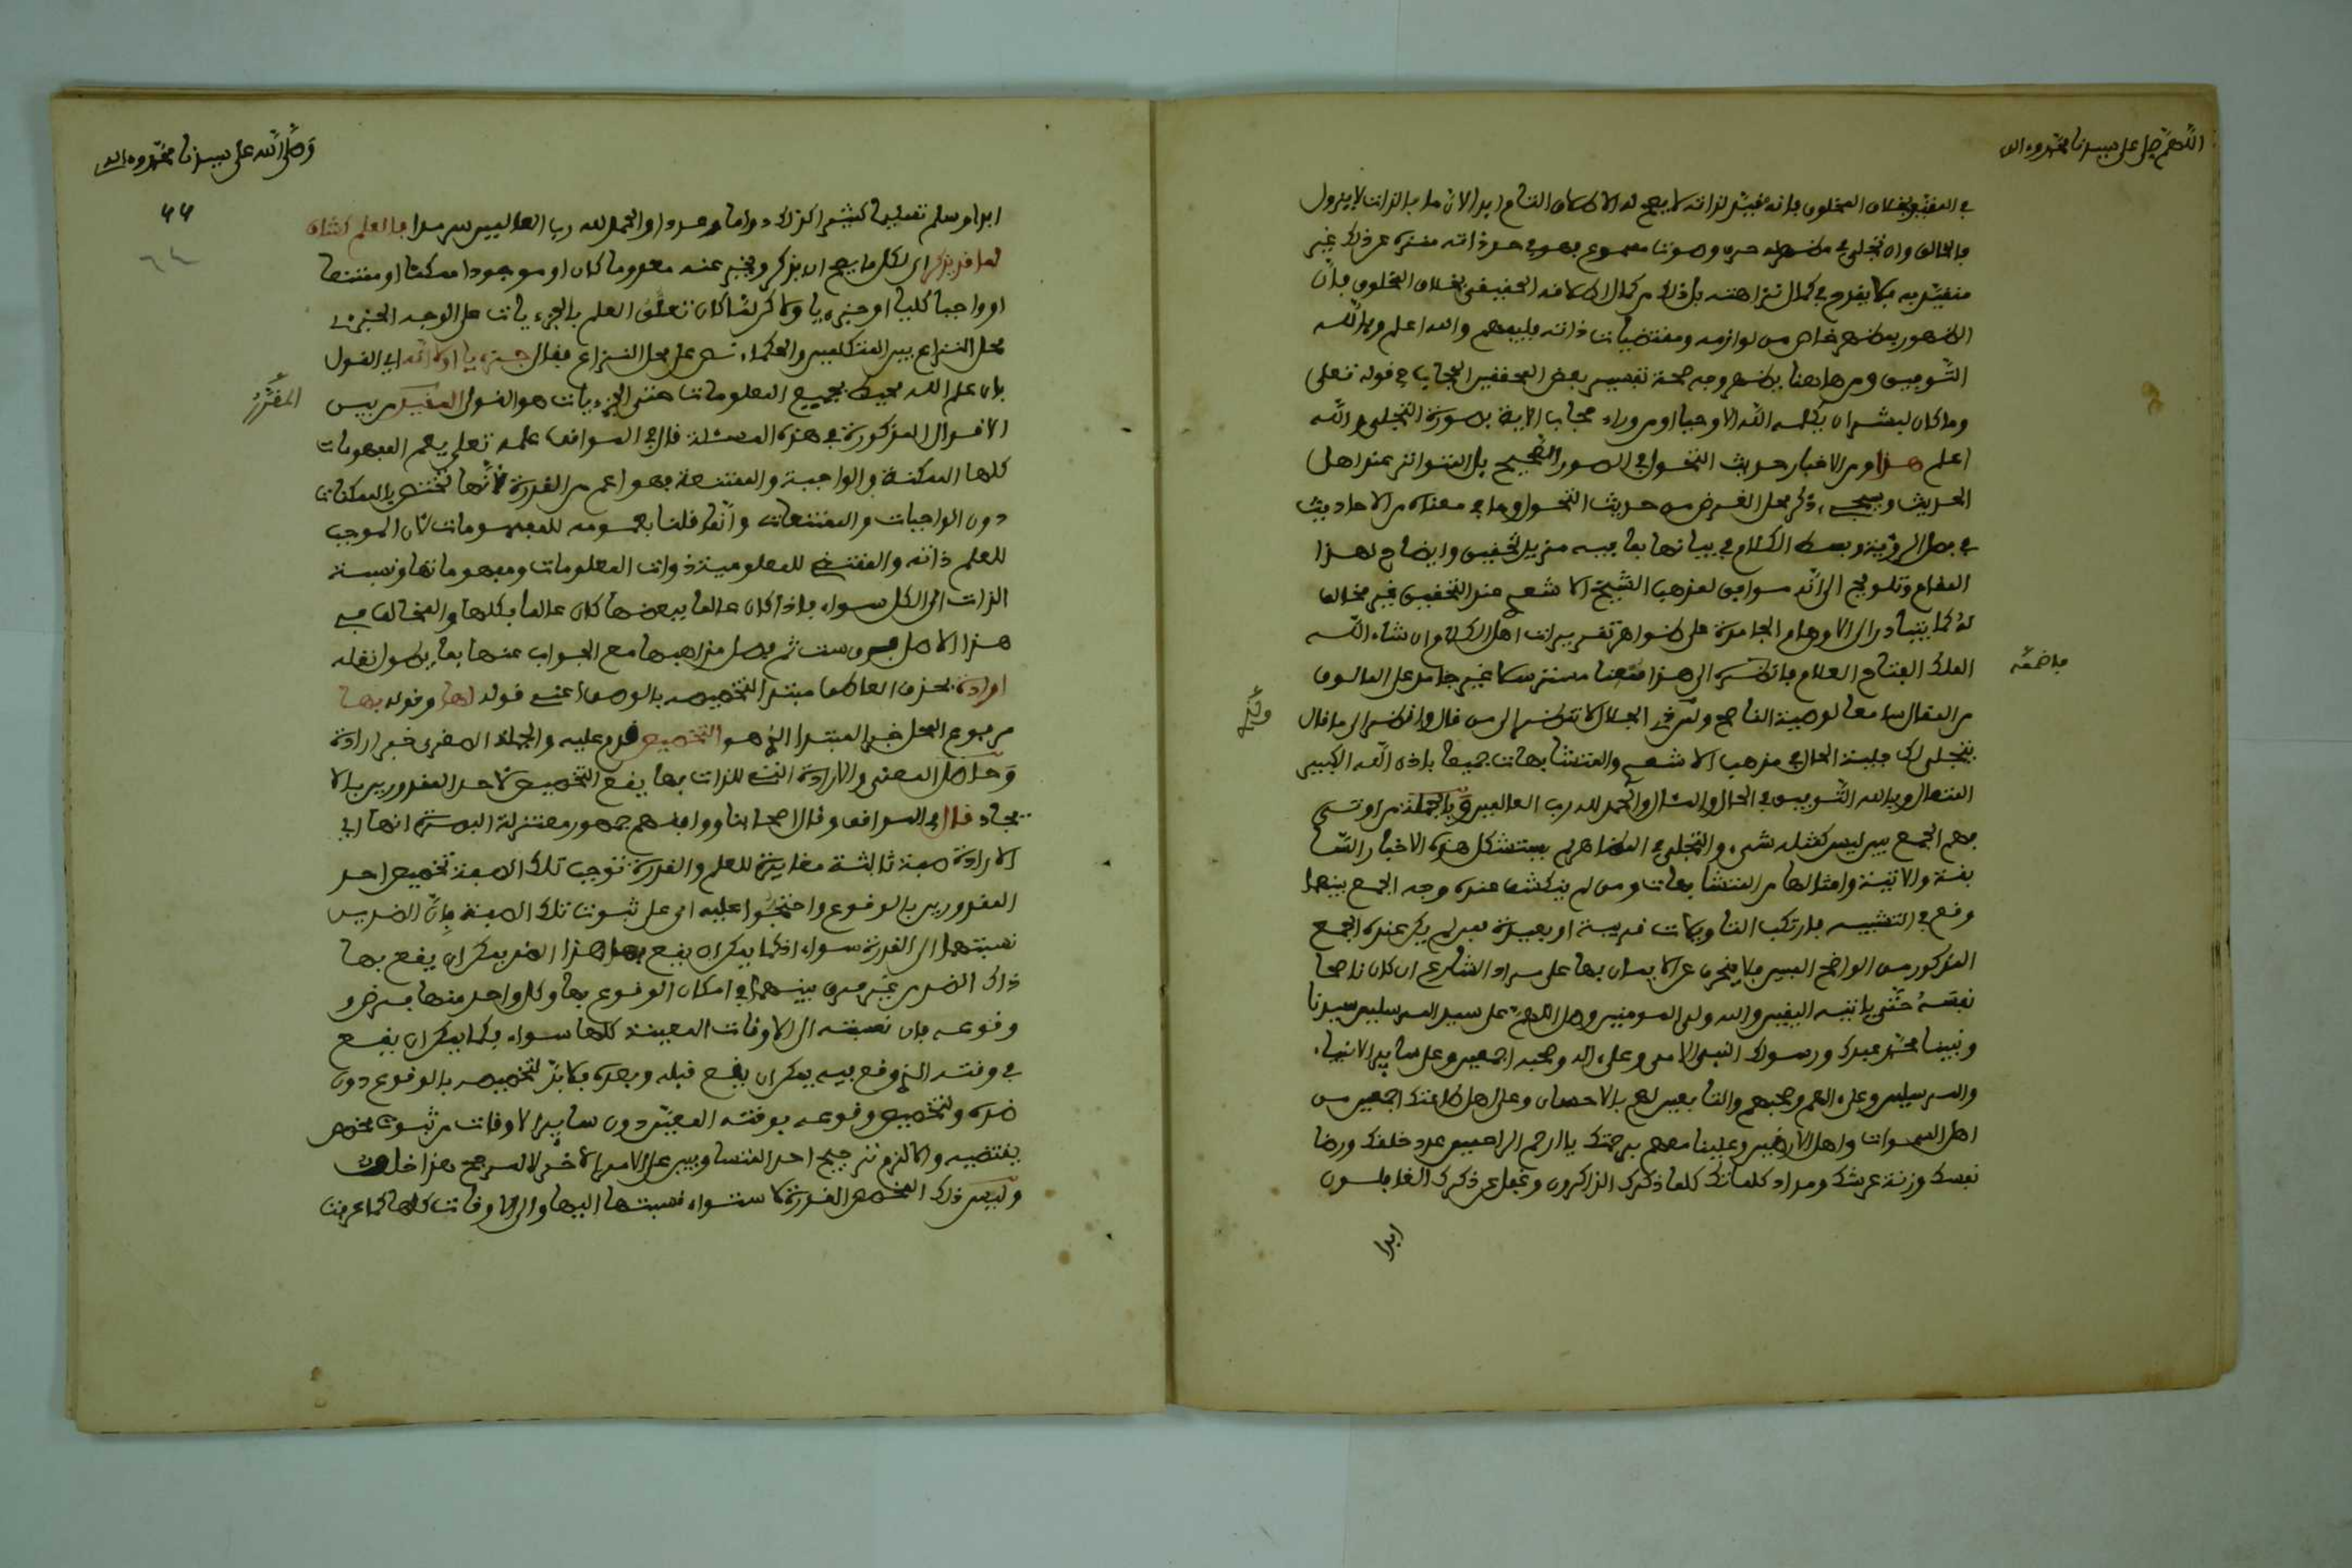 اللهم صل على سيدنا محمد وءاله
في المقيد بخلاف المخلوق فانه مقيد لذاته لا يصح له الاطلاق التام ابدا لان ما بالذات لا يزول
فالحالق وان تجلى في مظهر له حرف وصوت مسموع فهو في حد ذاته منزه عن ذلك غير
متقيد به فلا يقدح في كمال نزاهته بل ذلك من كمال اطلاقه الحقيقي بخلاف المخلوق فان
الظهور بمظهر خاص من لوازمه ومقتضيات ذاته فليفهم والله اعلم وبالله
التوفيق ومن هاهنا يظهر وجه صحة تفسير بعض المحققين الحجاب في قوله تعلى
وما كان لبشر ان يكلمه الله الا وحيا او من وراء حجاب الاية بصورة التجلي والله
اعلم هذا ومن الاخبار حديث التحول في الصور الصحيح بل المتواتر عند اهل
الحديث وسيجيء ذكر محل الغرض من حديث التحول وما في معناه من الاحاديث
في فصل الرؤية وبسط الكلام في بيانها بما فيه مزيد تحقيق وايضاح لهذا
المقام وتلويح الى انه موافق لمذهب الشيخ الاشعري عند التحقيق غير مخالف
له كما يتبادر الى الاوهام الجامدة على ظواهر تقريرات اهل الكلام ان شاء الله
الملك الفتاح العلام فانظر الى هذا منصفا مسترسلا غير جامد على المالوف
من المقال سامعا لوصية الناصح ولي في الجلال لا تنظر الى من قال وانظر الى ما قال
يتجلى لك جلية الحال في مذهب الاشعري والمتشابهات جميعا باذن الله الكبير
المتعال وبالله التوفيق في الحال والمئال والحمد لله رب العالمين وبالجملة من اوتي
فهم الجمع بين ليس كمثله شيء والتجلي في المظاهر لم يستشكل هذه الاخبار السا
بقة والاتية وامثالها من المتشابهات ومن لم ينكشف عنده وجه الجمع بينهما
وقع في التشبيه فارتكب التاويلات قريبة او بعيدة فمن لم يكن عنده الجمع
المذكور من الواضح المبين فلا ينحرف عن الايمان بها على مراد الشارع ان كان ناصحا
نفسه حتى ياتيه اليقين والله ولي المومنين وصل اللهم على سيد المرسلين سيدنا
ونبينا محمد عبدك ورسولك النبي الامي وعلى اله وصحبه اجمعين وعلى سائر الانبياء
والمرسلين وعلى الهم وصحبهم والتابعين لهم بالاحسان وعلى اهل طاعتك اجمعين من
اهل السموات واهل الارضين وعلينا معهم برحمتك يا ارحم الراحمين عدد خلقك ورضا
نفسك وزنة عرشك ومداد كلماتك كلما ذكرك الذاكرون وغفل عن ذكرك الغافلون
ابدا
وصلى الله على سيدنا محمد وءاله
ابدا وسلم تسليما كثيرا كذلك دواما وعددا والحمد لله رب العالمين سرمدا فالعلم كشاف
لما قد يذكر اي لكل ما يصح ان يذكر ويخبر عنه معدوما كان او موجودا ممكنا او ممتنعا
او واجبا كليا او جزءيا ولاكن لما كان تعلق العلم بالجزءيات على الوجه الجزءي
محل النزاع بين المتكلمين والحكماء نص على محل النزاع فقال جزءيا او لا انه اي القول
بان علم الله محيط بجميع المعلومات حتى الجزءيات هو القول المفيد من بين
الاقوال المذكورة في هذه المسئلة قال في المواقف علمه تعلى يعم المفهومات
كلها الممكنة والواجبة والممتنعة فهو اعم من القدرة لانها تختص بالممكنات
دون الواجبات والممتنعات وانما قلنا بعمومه للمفهومات لان الموجب
للعلم ذاته والمقتضي للمعلومية ذوات المعلومات ومفهوماتها ونسبة
الذات الى الكل سواء فاذا كان عالما ببعضها كان عالما بكلها والمخالف في
هذا الاصل فرق ست ثم فصل مذاهبها مع الجواب عنها بما يطول نقله
ارادة بحذف العاطف مبتدا التخصيص بالوصف اعني قوله لها وقوله بها
مرفوع المحل خبر المبتدا الذي هو التخصيص قدم عليه والجملة الصغرى خبر ارادة
وحاصل المعنى والارادة التي للذات بها يقع التخصيص لاحد المقدورين بالا
يجاد قال في المواقف وقال اصحابنا ووافقهم جمهور معتزلة البصرة انها اي
الارادة صفة ثالثة مغايرة للعلم والقدرة توجب تلك الصفة تخصيص احد
المقدورين بالوقوع واحتجوا عليه اي على ثبوت تلك الصفة بان الضدين
نسبتهما الى القدرة سواء اذ كما يمكن ان يقع بها هذا الضد يمكن ان يقع بها
ذاك الضد من غير فرق بينهما في امكان الوقوع بها وكل واحد منها فرض و
وقوعه فان نسبته الى الاوقات المعينة كلها سواء فكما يمكن ان يقع
في وقته الذي وقع فيه يمكن ان يقع قبله وبعده فلا بد لتخصيصه بالوقوع دون
ضده ولتخصيص وقوعه بوقته المعين دون سائر الاوقات من ثبوت مخصص
يقتضيه والا لزم ترجيح احد المتساويين على الامر الاخر لا لمرجح هذا خلف
وليس ذلك المخصص القدرة لاستواء نسبتها اليها والى الاوقات كلها كما عرفت